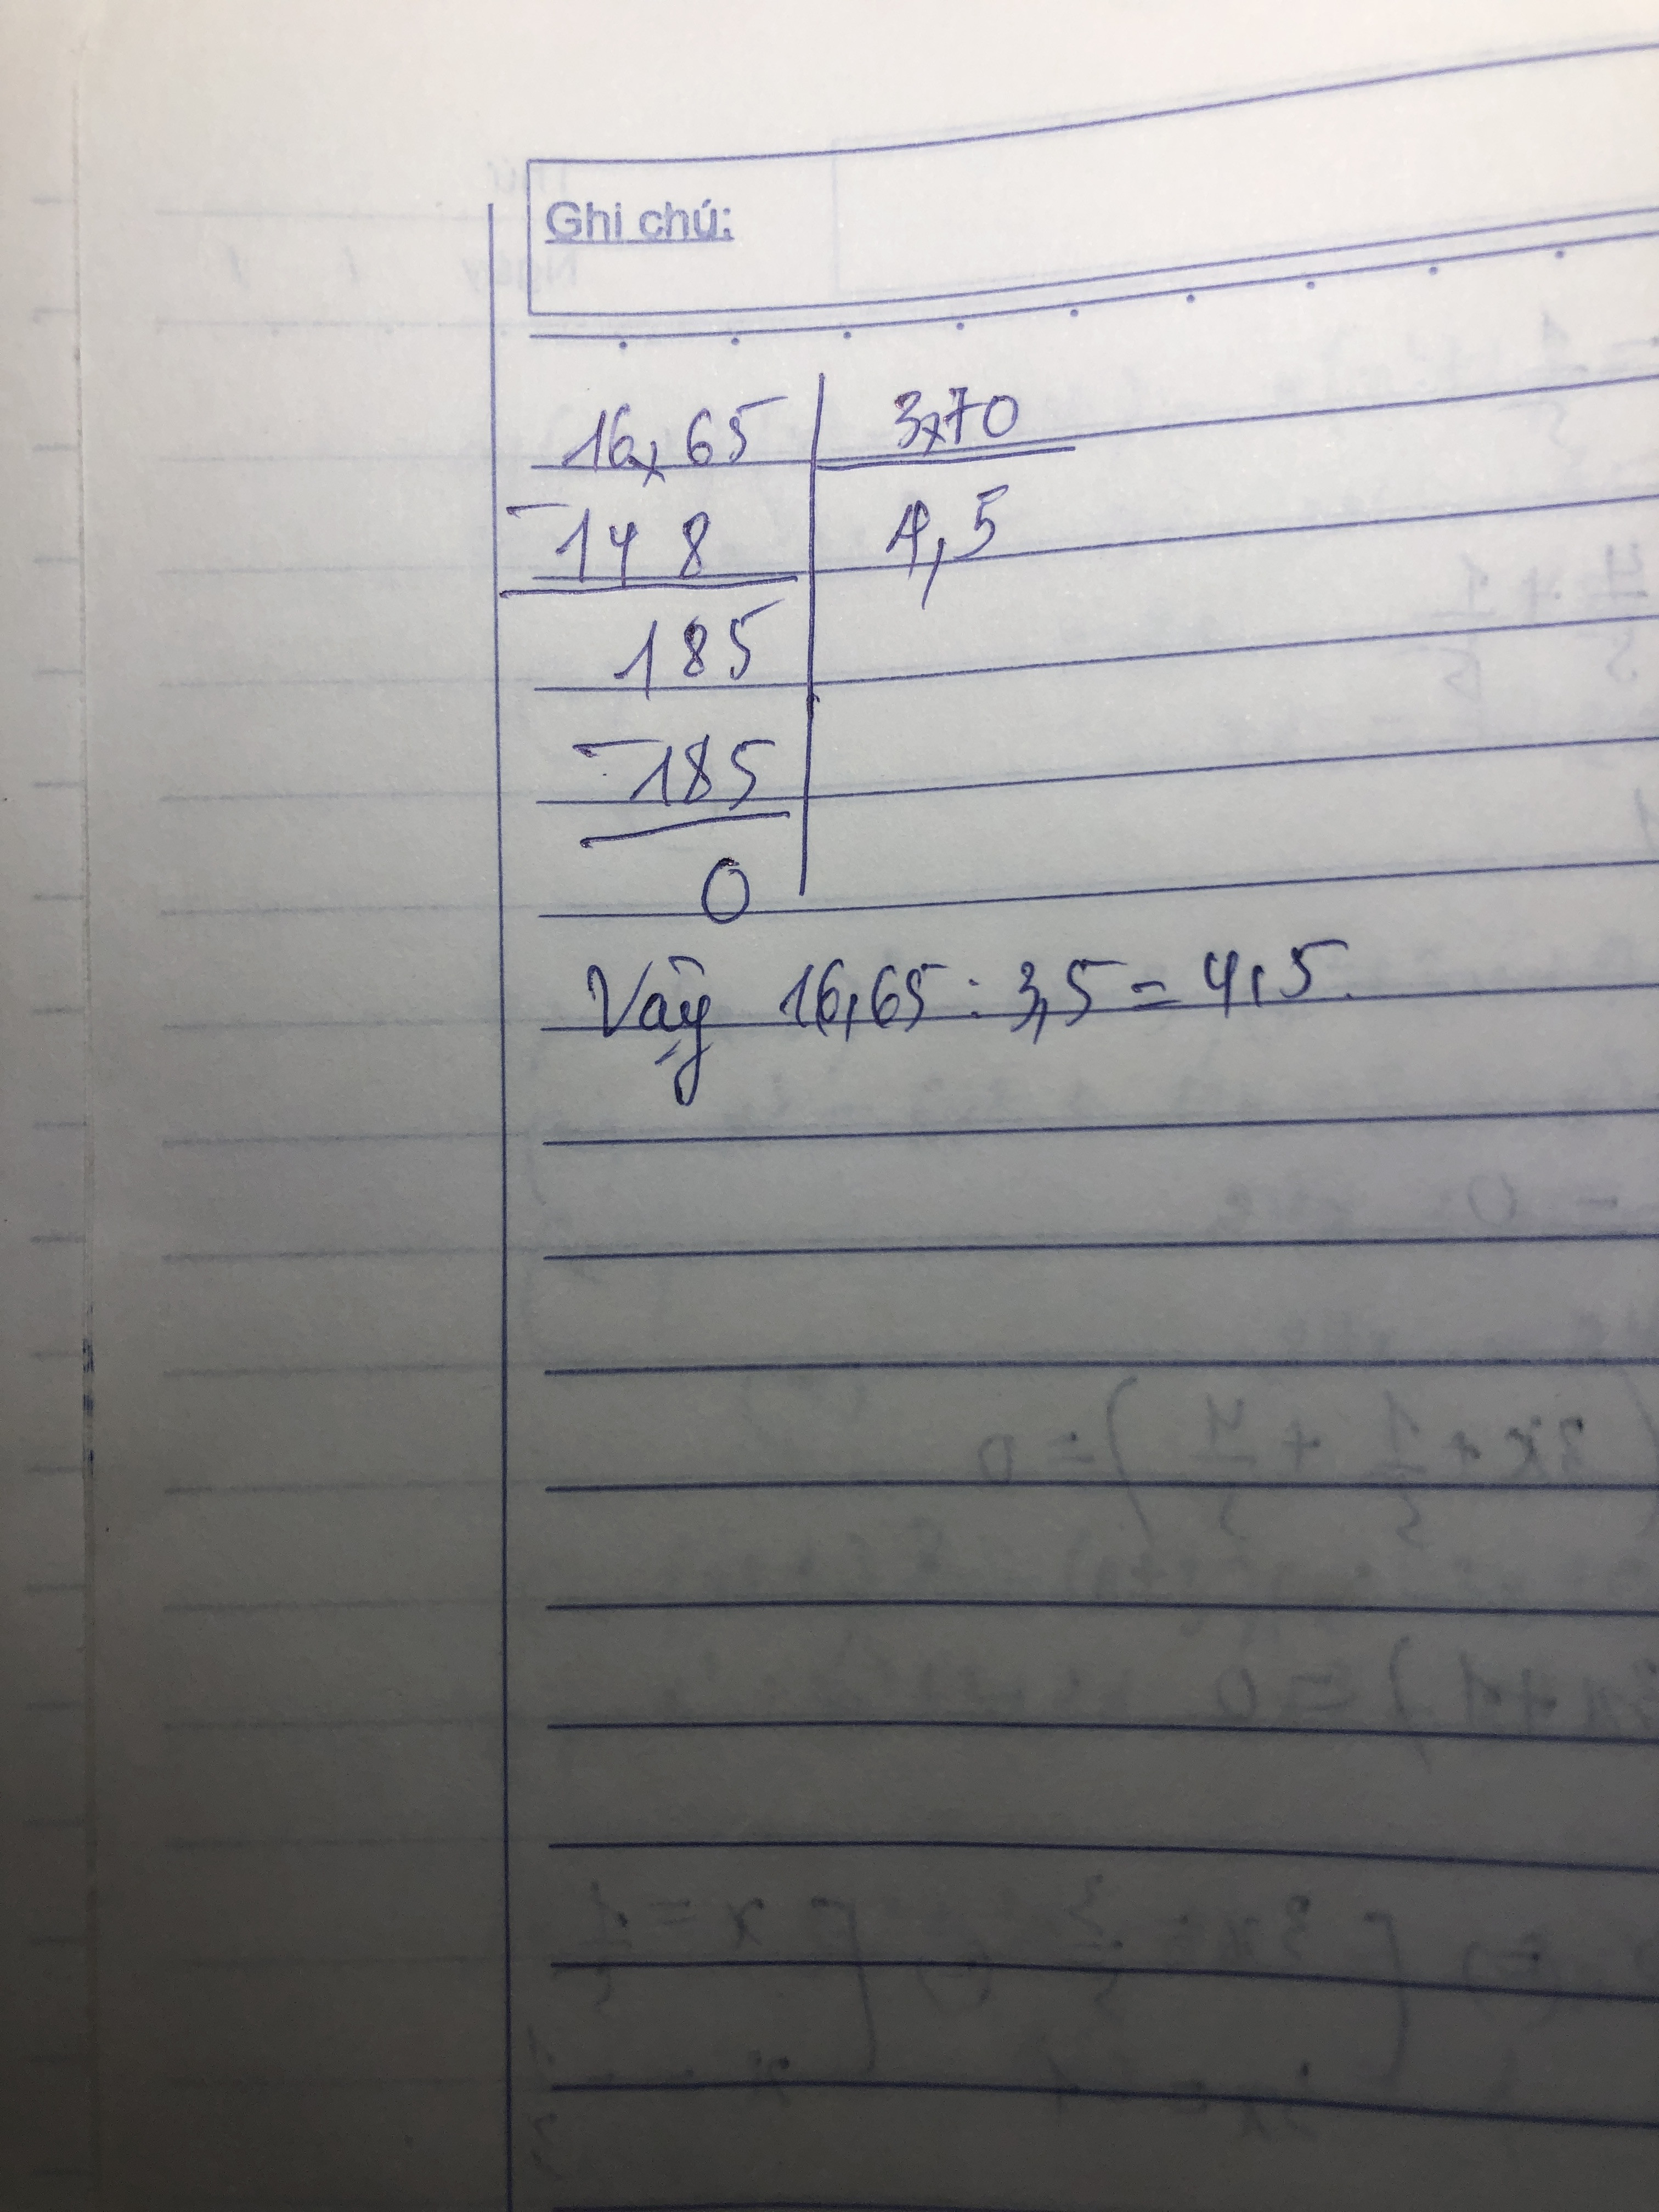 Ghi chú:
16,65 3,70
- 148 4,5
185
- 185
0
Vậy 16,65 : 3,5 = 4,5.